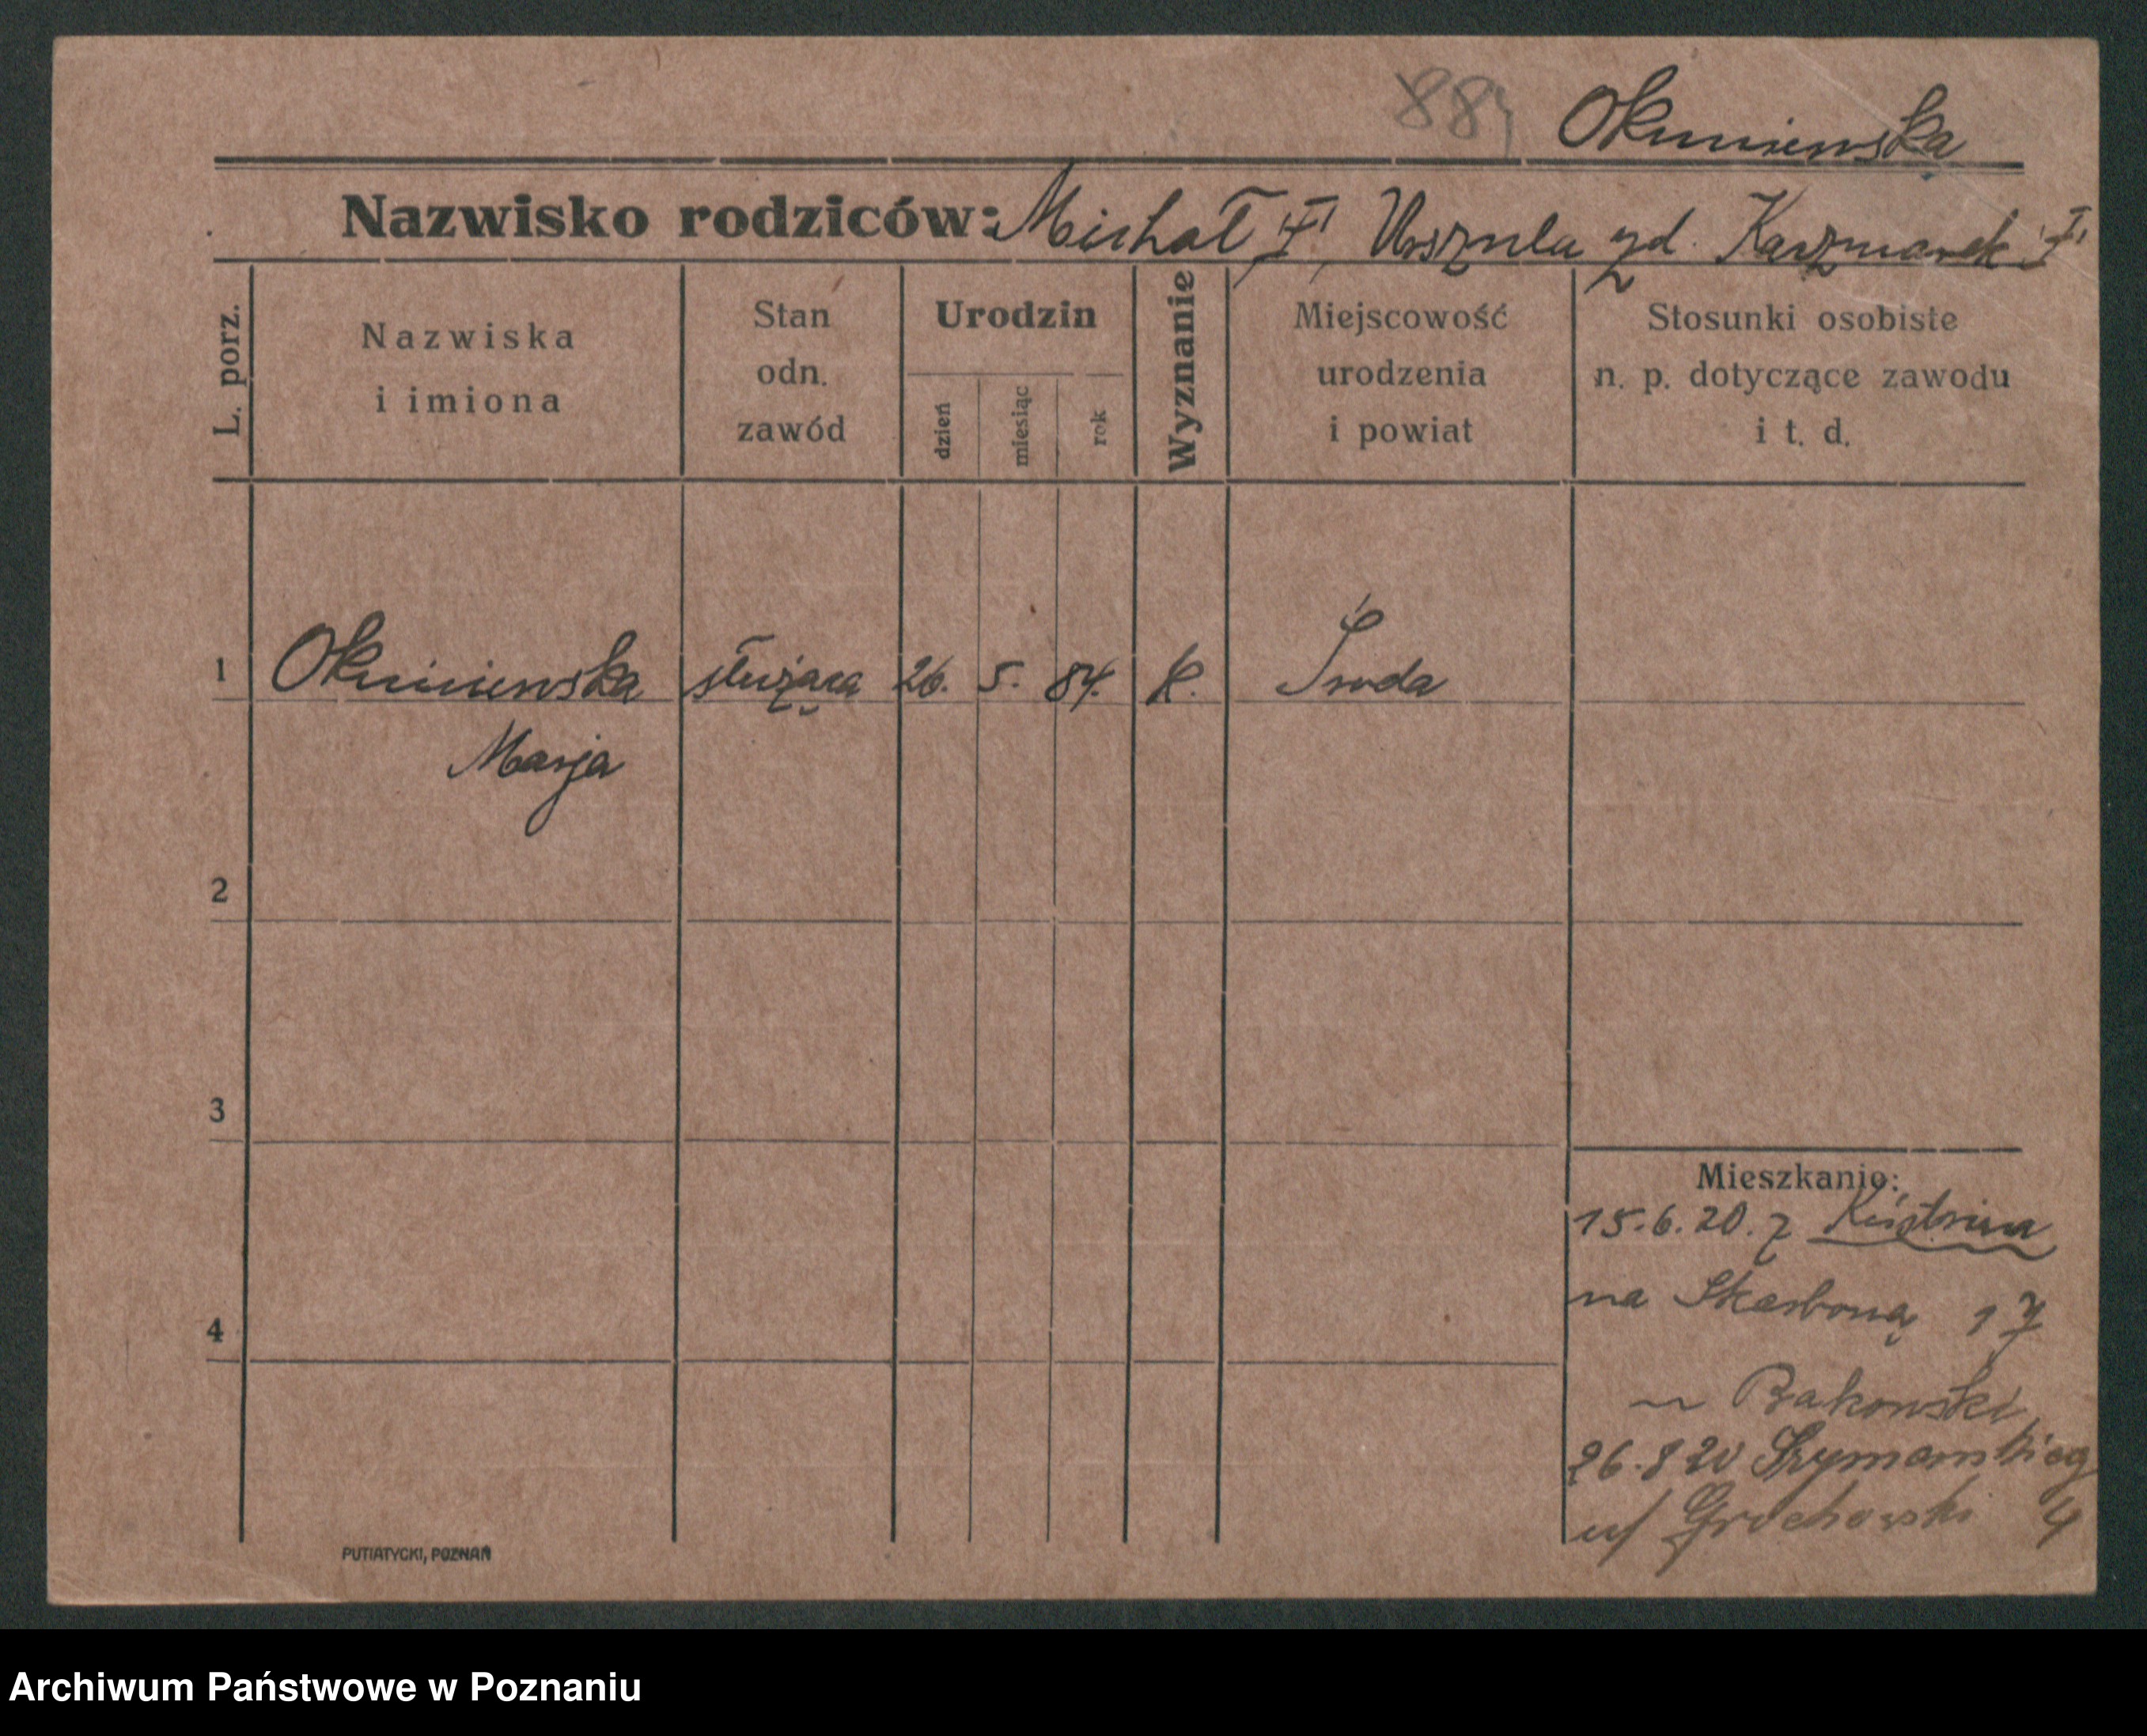 88
Okuniewska
Nazwisko rodziców: Michał †, Urszula zd. Kaczmarek †
L. porz.
Nazwiska
i imiona
Stan
odn.
zawód
Urodzin
dzień
miesiąc
rok
Wyznanie
Miejscowość
urodzenia
i powiat
Stosunki osobiste
n. p. dotyczące zawodu
i t. d.
1 Okuniewska służąca 26. 5. 84. k. Środa
Marja
2
3
4
Mieszkanie:
15.6.20. z Küstrina
na Skarbową 17
Bakowski
26.8 20 Szymańskieg
u/ Grochowski 4
PUTIATYCKI, POZNAŃ
Archiwum Państwowe w Poznaniu